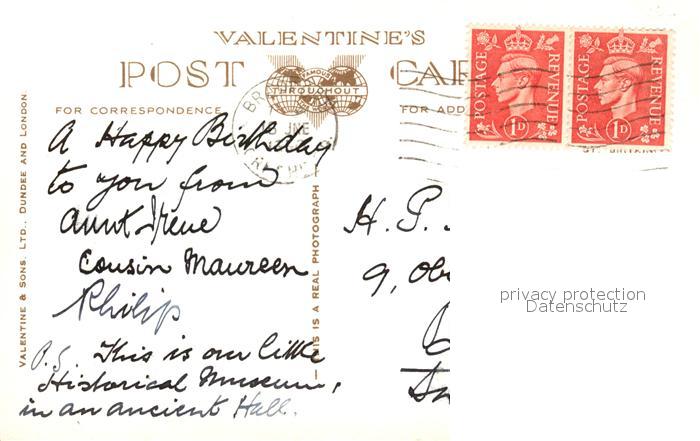 VALENTINE'S
POST CAR
FAMOUS
THROUGHOUT
FOR CORRESPONDENCE
FOR ADD
POSTAGE REVENUE
1D
POSTAGE REVENUE
1D
A Happy Birthday
to you from
Aunt Irene
Cousin Maureen
Philip
P.S. This is our little
Historical Museum,
in an ancient Hall.
VALENTINE & SONS. LTD., DUNDEE AND LONDON.
THIS IS A REAL PHOTOGRAPH
H. P.
9,
privacy protection
Datenschutz